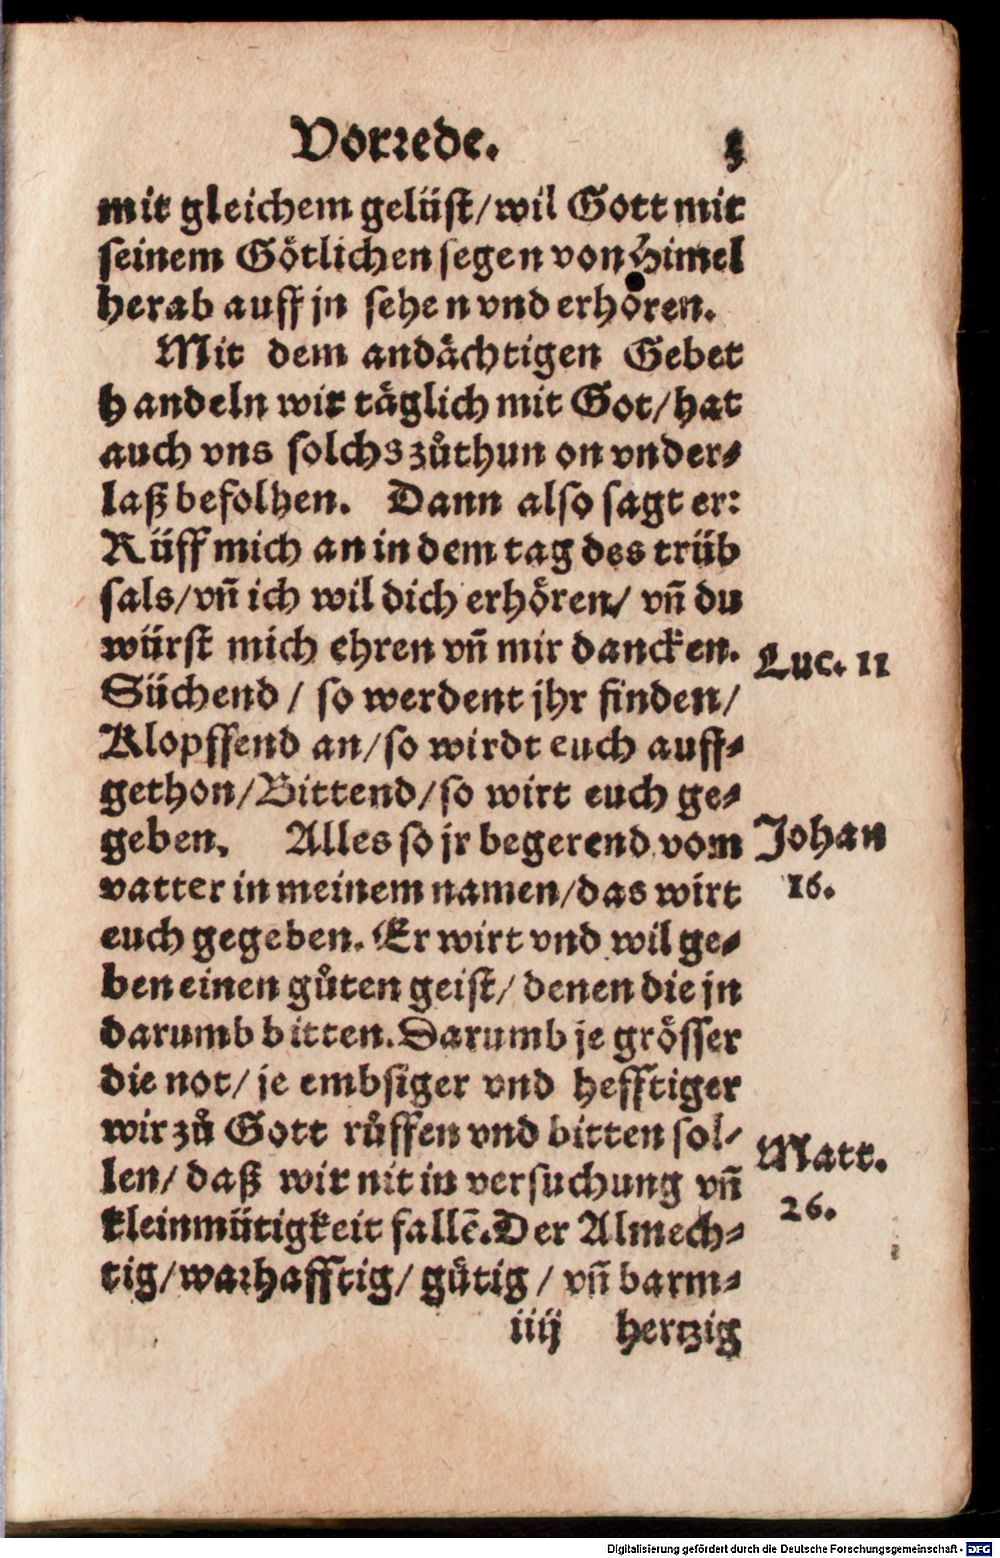 Vorrede. 3
mit gleichem gelüst/wil Gott mit
seinem Götlichen segen von Himel
herab auff jn sehen vnd erhören.
Mit dem andächtigen Gebet
handeln wir täglich mit Got/hat
auch vns solchs zůthun on vnder⸗
laß befolhen. Dann also sagt er:
Rüff mich an in dem tag des trüb
sals/vñ ich wil dich erhören/ vñ du
würst mich ehren vñ mir dancken.
Luc. 11
Süchend / so werdent jhr finden/
Klopffend an/so wirdt euch auff⸗
gethon/Bittend/so wirt euch ge⸗
geben. Alles so jr begerend vom
Johan
16.
vatter in meinem namen/das wirt
euch gegeben. Er wirt vnd wil ge⸗
ben einen gůten geist/ denen die jn
darumb bitten. Darumb je grösser
die not/ je embsiger vnd hefftiger
wir zů Gott růffen vnd bitten sol⸗
Matt.
26.
len/ daß wir nit in versuchung vñ
kleinmütigkeit fallẽ. Der Almech⸗
tig/warhafftig/ gütig / vñ barm⸗
iiij hertzig
Digitalisierung gefördert durch die Deutsche Forschungsgemeinschaft - DFG